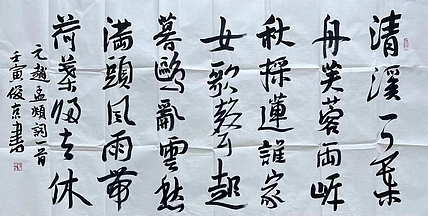 清溪一葉
舟芙蓉兩岸
秋採蓮誰家
女歌聲起
暮鷗亂雲愁
滿頭風雨帶
荷葉歸去休
元趙孟頫詞一首
壬寅俊京書